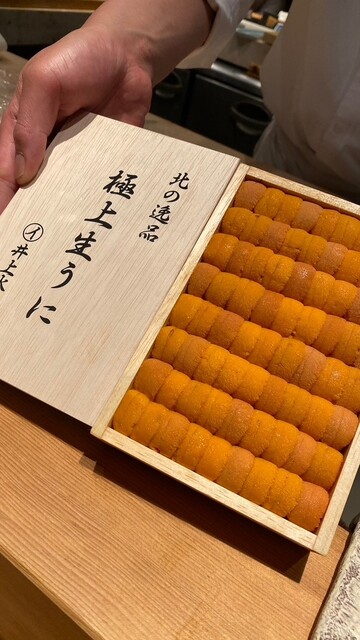 北の逸品
極上生うに
㋑井上水